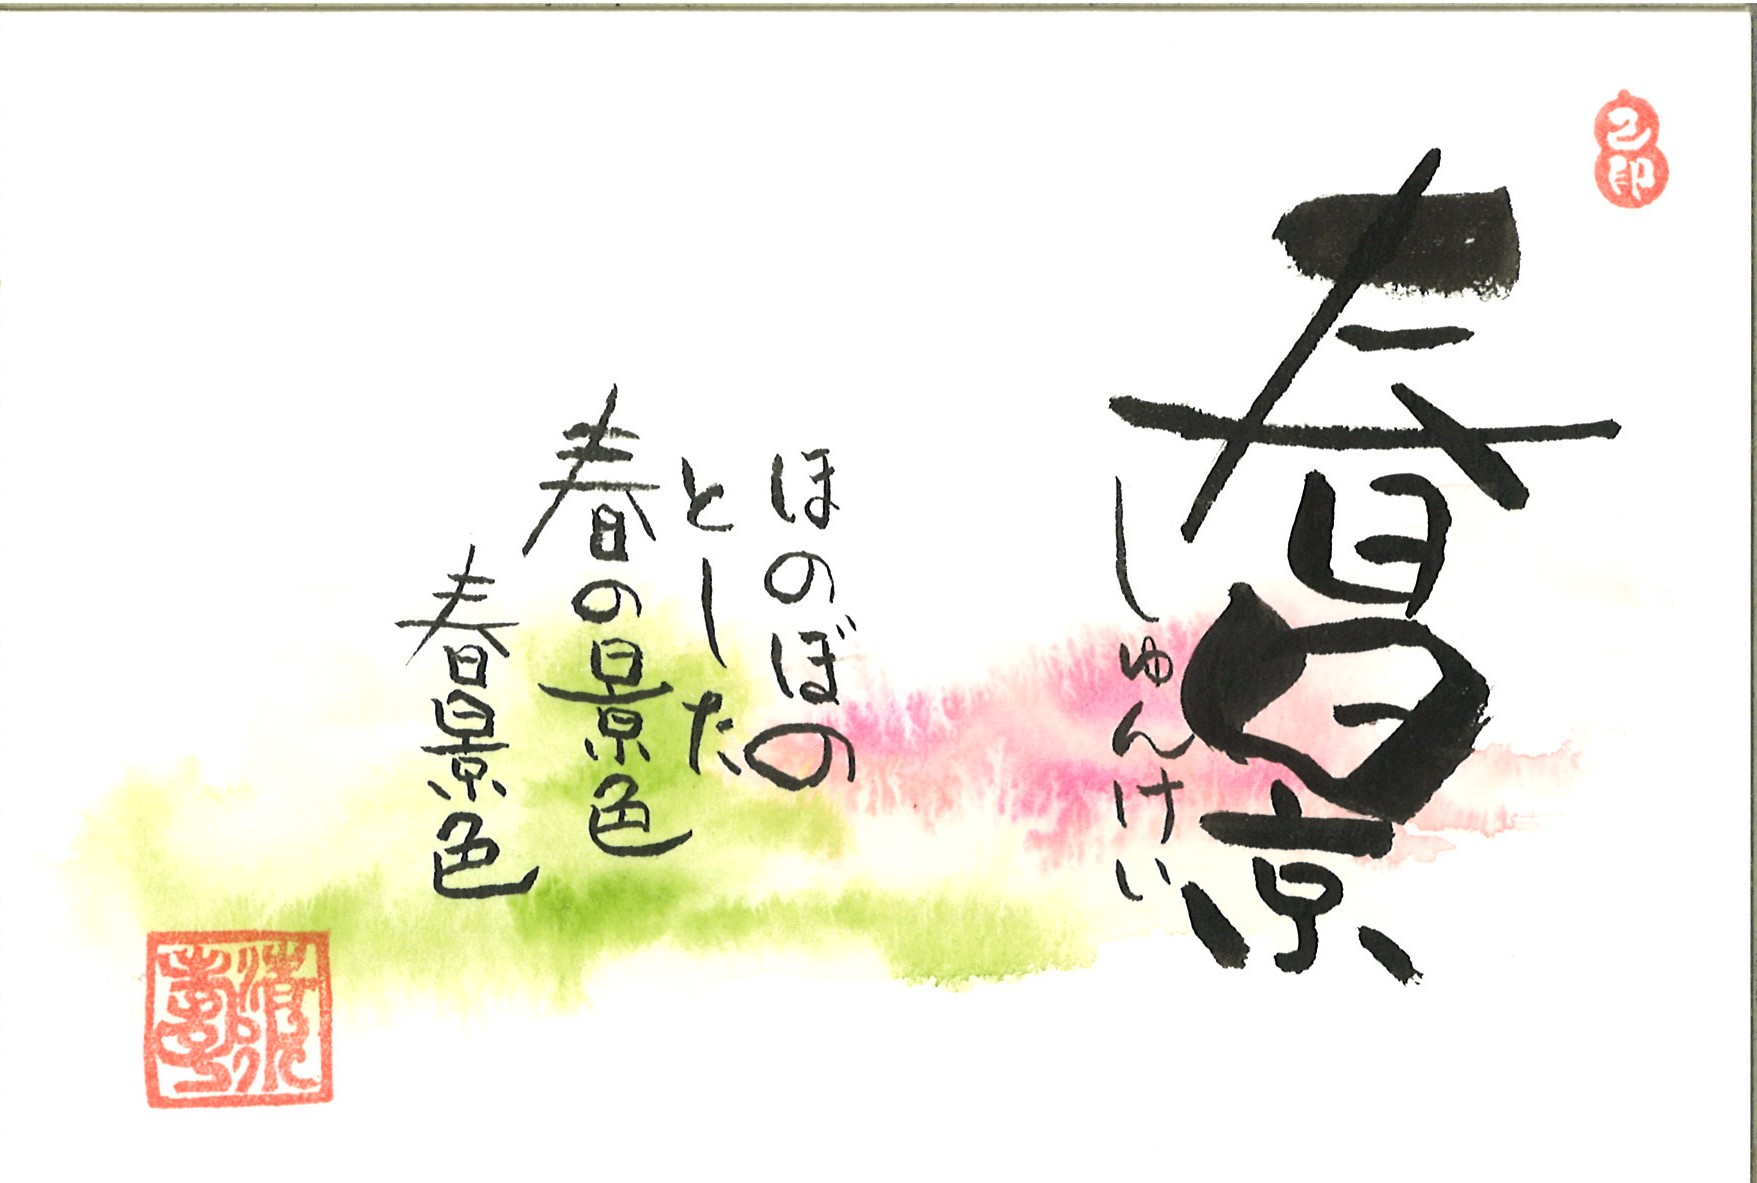 春景
しゅんけい
ほのぼの
とした
春の景色
春景色